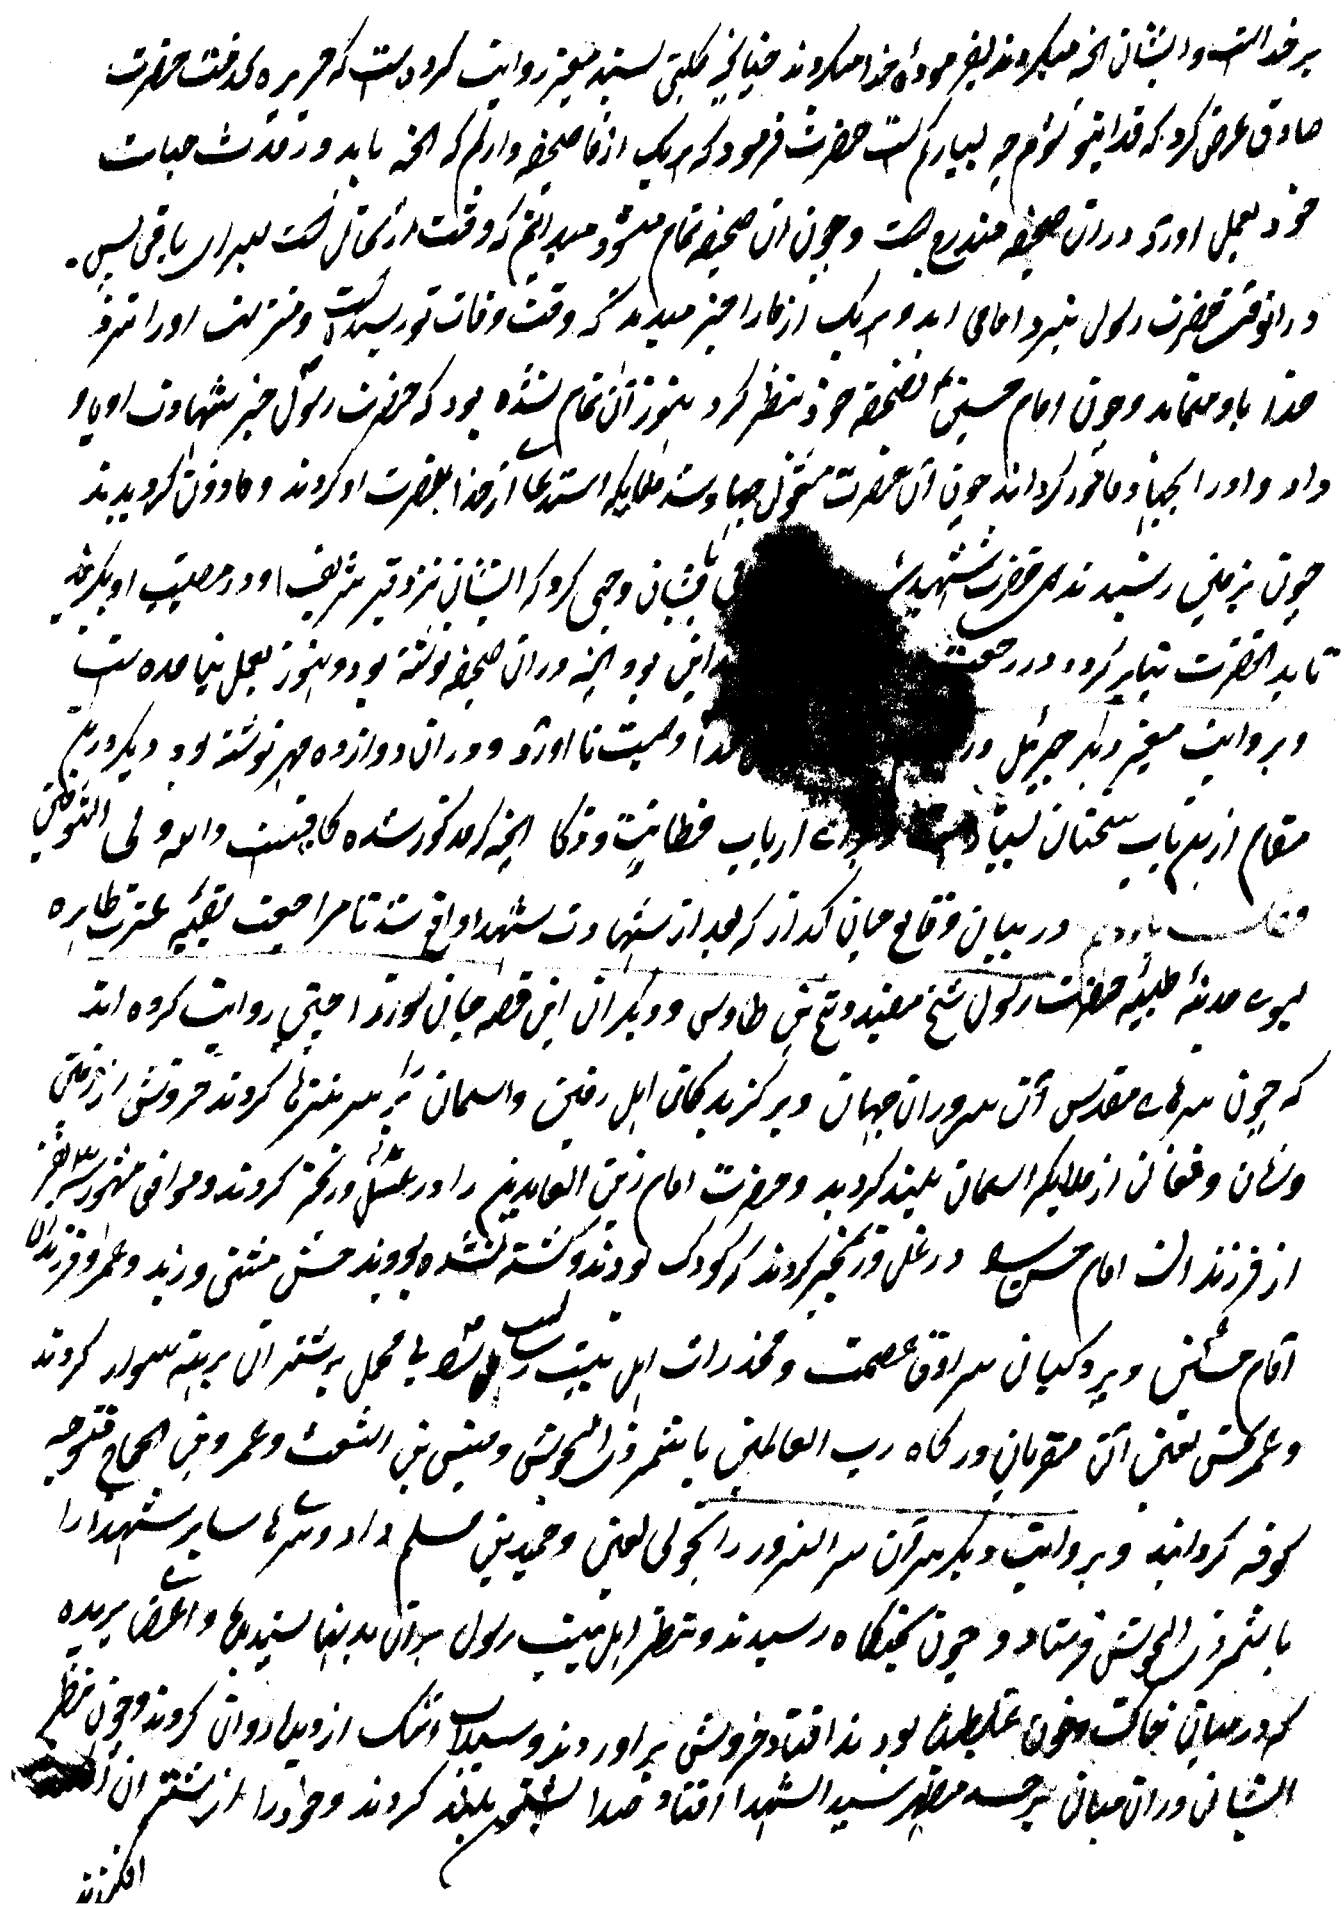 بر خداست و ایشان انچه میکردند بفرموده خدا میکردند چنانچه کلینی بسند معتبر روایت کرده است که حریر بخدمت حضرت
صادق عرض کرد که فدایتو شوم چه بسیار کم است حضرت فرمود که هر یک از ما صحیفه داریم که انچه باید در مدت حیات
خود بعمل اورد در ان صحیفه مندرج است و چون ان صحیفه تمام میشود میدانیم که وقت ارتحال است بسرای باقی پس
در انوقت حضرت رسول بنزد امامی اید و هر یک از ما را خبر میدهد که وقت وفات تو رسیده است و منزلت او را نزد
خدا باو مینماید و چون امام حسین بصحیفه خود نظر کرد هنوز ان تمام نشده بود که حضرت رسول خبر شهادت او باو
داد و او را بجهاد مامور گردانید چون ان حضرت مشغول جهاد شد ملایکه استدعا از خدا نصرت او کردند و ماذون گردیدند
چون بزمین رسیدند حضرت شهید بایشان وحی کرد که ایشان نزد قبر شریف او در مصیبت او بگریند
تا بد انحضرت بنابر کرده در رجعت این بود انچه در ان صحیفه نوشته بود و هنوز بعمل نیامده است
و بروایت معتبر دیگر جبرئیل وصیت نامه اورد و در ان دوازده مهر نوشته بود و دیگر درین
مقام ازین باب سخنان بسیار است ارباب فطانت و ذکا انچه که مذکور شده کافیست والله ولی التوفیق
در بیان وقایع جان گداز که بعد از شهادت شهدا واقع شد تا مراجعت بقیه عترت طاهره
بسوی مدینه طیبه حضرت رسول شیخ مفید و شیخ بن طاوس و دیگران این قصه جان سوز را چنین روایت کرده اند
که چون سرهای مقدس ان سروران جهان و برگزیدگان اهل زمین و اسمان را بر سر نیزها کردند خروش از زمین
و زمان و فغان از ملایکه اسمان بلند گردید و حضرت امام زین العابدین را در غل و زنجیر کردند و موافق مشهور سه نفر
از فرزندان امام حسن در غل و زنجیر کردند که کودک بودند و کشته نشده بودند حسن مثنی و زید و عمر و فرزندان
امام حسین و پردگیان سرادق عصمت و مخدرات اهل بیت رسالت را بی محمل بر شتران برهنه سوار کردند
و عمر نحس لعین ان مقربان درگاه رب العالمین با شمر ذی الجوشن و قیس بن اشعث و عمرو بن الحجاج متوجه
کوفه گردانید و بروایت دیگر سر ان سرور را بخولی لعین و حمید بن مسلم داد و سرهای سایر شهدا را
با شمر ذی الجوشن فرستاد و چون بجنگگاه رسیدند و نظر اهل بیت رسول بران بدنها و اعضا بریده
که در میان خاک و خون غلطیده بودند افتاد خروش براوردند و سیلاب اشک از دیدها روان کردند و چون نظر
ایشان در ان میان بر جسد مطهر سید الشهدا افتاد صدا بلند کردند و خود را از شتر ان
افکندند